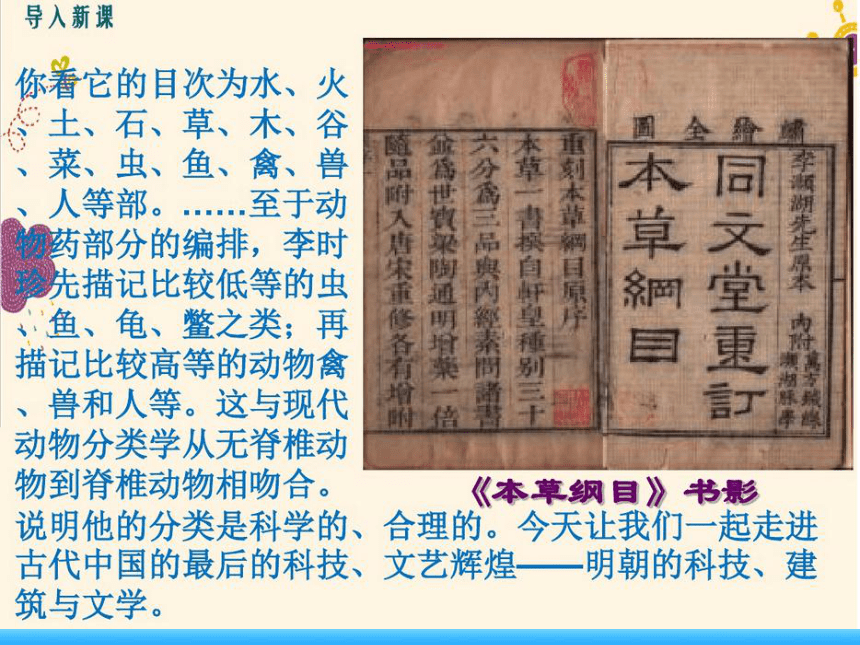 导入新课
你看它的目次为水、火
、土、石、草、木、谷
、菜、虫、鱼、禽、兽
、人等部。……至于动
物药部分的编排，李时
珍先描记比较低等的虫
、鱼、龟、鳖之类；再
描记比较高等的动物禽
、兽和人等。这与现代
动物分类学从无脊椎动
物到脊椎动物相吻合。
说明他的分类是科学的、合理的。今天让我们一起走进
古代中国的最后的科技、文艺辉煌——明朝的科技、建
筑与文学。
繡繪全圖
李瀕湖先生原本 内附
萬方鍼線
瀕湖脉學
同文堂重訂
本草綱目
重刻本草綱目原序
本草一書撰自軒皇種别三十
六分爲三品與內經素問諸書
竝爲世寶梁陶通明增藥一倍
隨品附入唐宋重修各有增附
《本草纲目》书影